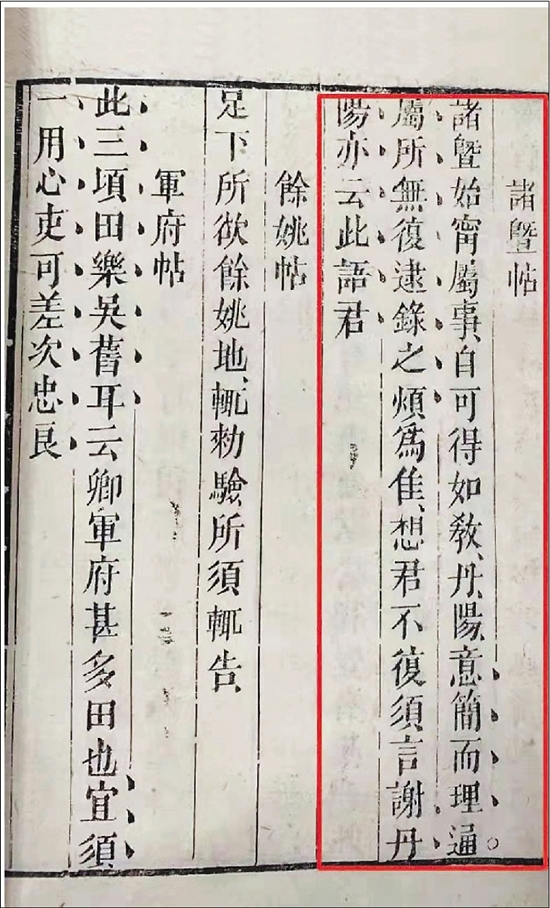 諸曁帖
諸曁始甯屬事、自可得如教、丹陽、意簡而理通。
屬所無復逮錄之煩爲佳、想君不復須言謝丹
陽亦云此語君
餘姚帖
足下所欲餘姚地、輒勑驗、所須輒告、
軍府帖
此三項田樂吳舊耳云卿軍府甚多田也宜須
一用心吏可差次忠良